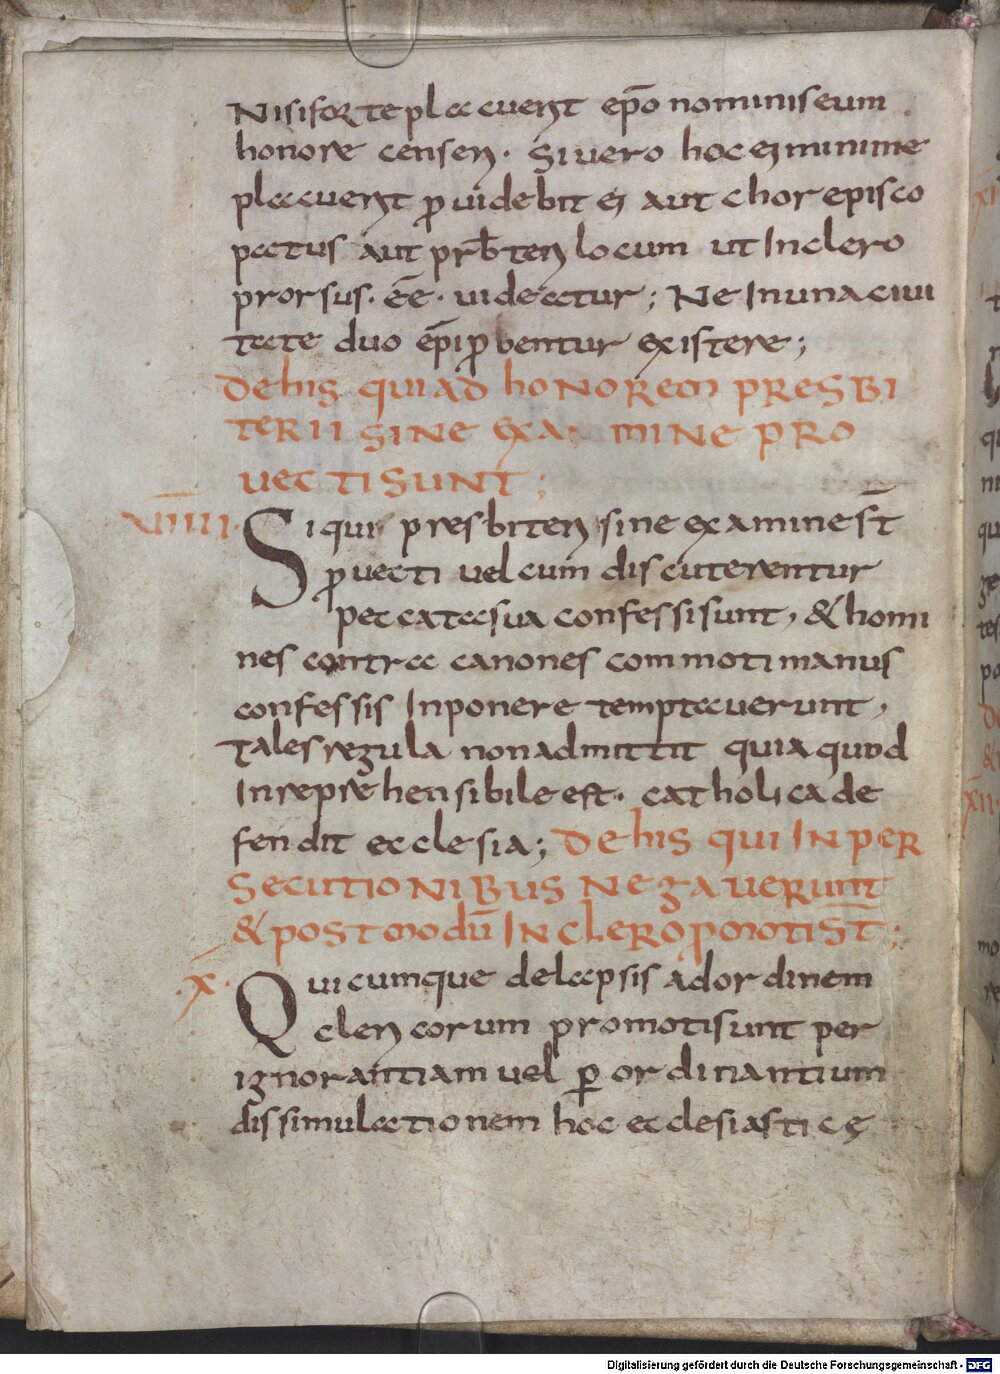 Nisi forte placuerit ep̄o nominis eum
honore censeri. Si uero hoc ei minime
placuerit ꝓuidebit ei aut chorepisco
patus aut prb̄teri locum ut In clero
prorsus. eē. uideatur; Ne In una ciui
tate duo ep̄i ꝓbentur existere;
De his qui ad honorem presbi
terii sine exa mine pro
uecti sunt;
VIIII. Si qui presbiteri sine examine st̄
ꝓuecti uel cum discuterentur
peccata sua confessi sunt, & homi
nes contra canones commoti manus
confessis Inponere temptauerunt,
Tales regula non admittit quia quod
Inreprehensibile est. catholica de
fendit ecclesia; De his qui In per
secutionibus negauerunt
& postmodū In clero ꝓmoti st̄;
.X. Quicumque de lapsis ad ordinem
clericorum promoti sunt per
ignorantiam uel ꝑ ordinantium
dissimulationem hoc ecclesiasticę
Digitalisierung gefördert durch die Deutsche Forschungsgemeinschaft - DFG